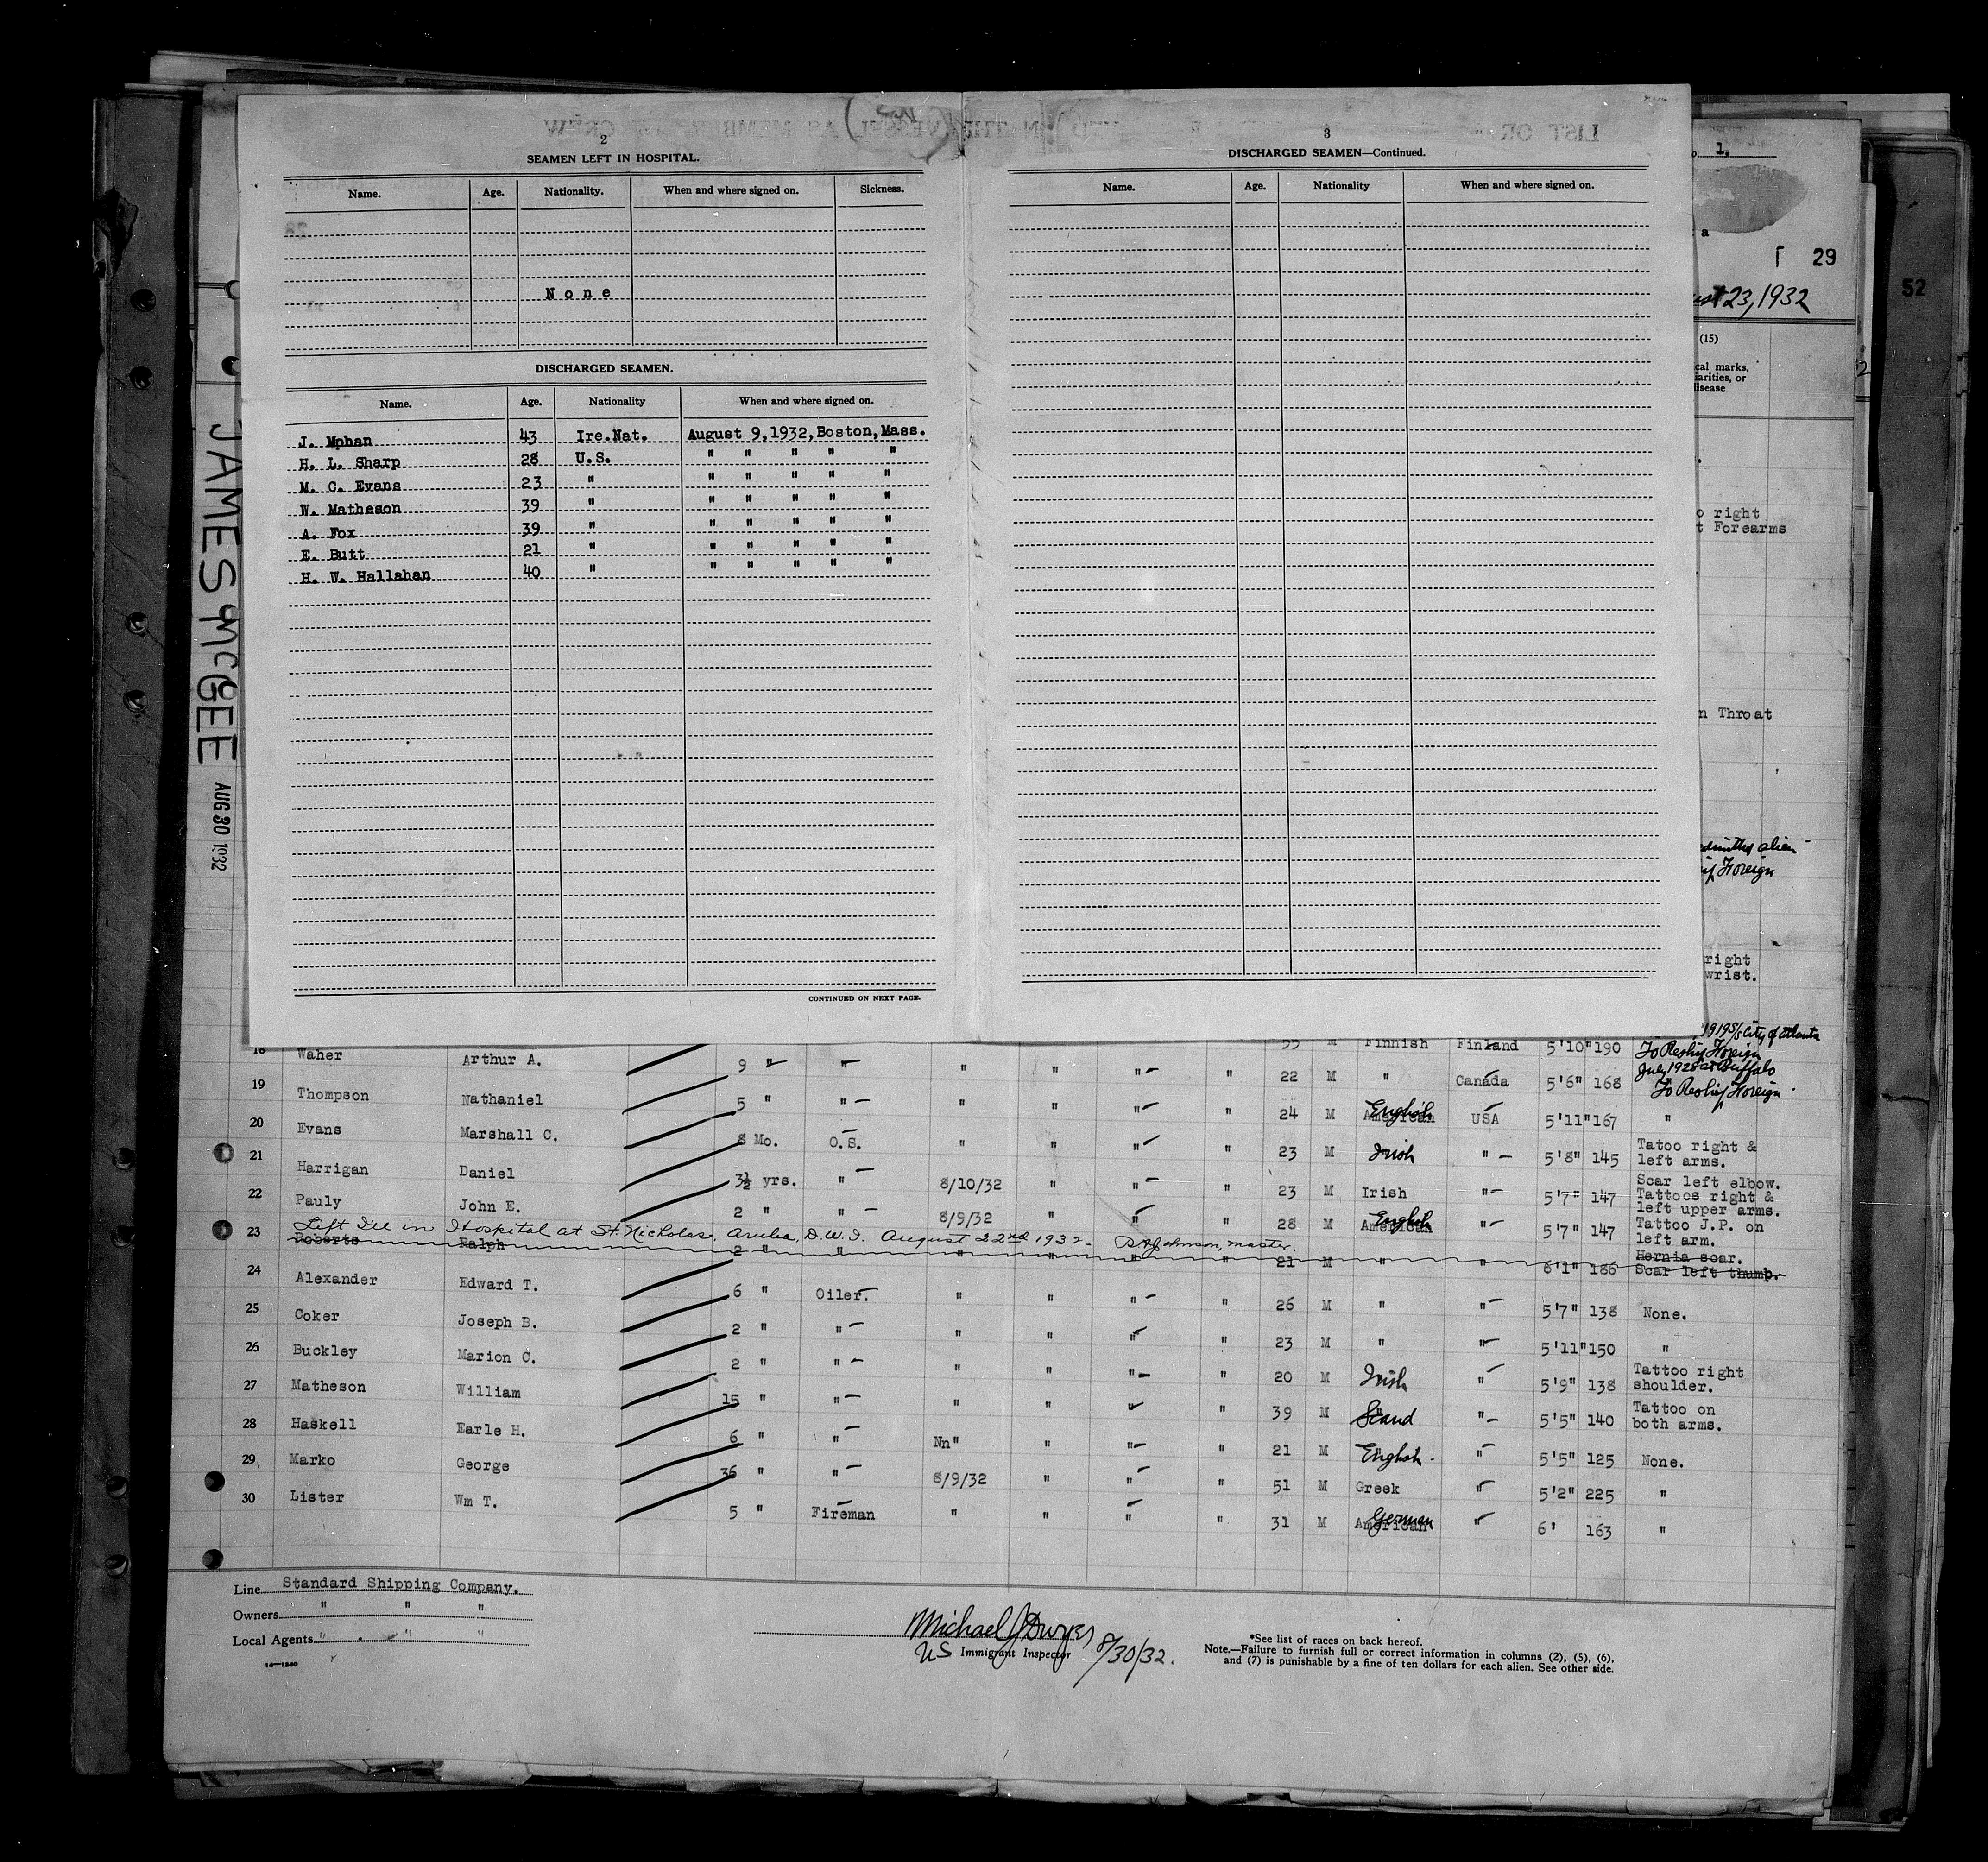 2
SEAMEN LEFT IN HOSPITAL.
Name. Age. Nationality. When and where signed on. Sickness.
None
DISCHARGED SEAMEN.
Name. Age. Nationality When and where signed on.
J. Mohan 43 Ire.Nat. August 9,1932,Boston,Mass.
H. L. Sharp 28 U.S. " " " " "
M. C. Evans 23 " " " " " "
W. Matheson 39 " " " " " "
A. Fox 39 " " " " " "
E. Butt 21 " " " " " "
H. W. Hallahan 40 " " " " " "
CONTINUED ON NEXT PAGE.
3
DISCHARGED SEAMEN—Continued.
Name. Age. Nationality When and where signed on.
1.
a
29
23, 1932
52
(15)
cal marks,
iarities, or
disease
o right
t Forearms
n Throat
alien
Foreign
right
wrist.
JAMES McGEE
AUG 30 1932
S/S City of Atlanta
18 Waher Arthur A. 9 " " " " " " 55 M Finnish Finland 5'10" 190 To Reship Foreign
July 1928 at Buffalo
19 Thompson Nathaniel 5 " " " " " " 22 M " Canada 5'6" 168 To Reship Foreign
20 Evans Marshall C. 8 Mo. O.S. " " " " 24 M American English USA 5'11" 167 "
21 Harrigan Daniel 3½ yrs. " 8/10/32 " " " 23 M Irish " 5'8" 145 Tatoo right &
left arms.
22 Pauly John E. 2 " " 8/9/32 " " " 23 M Irish " 5'7" 147 Scar left elbow.
Tattoos right &
left upper arms.
Left Ill in Hospital at St. Nicholas, Aruba, D.W.I. August 22nd 1932. Johnson, master.
23 Roberts Ralph 2 " " " " " " 28 M American English " 5'7" 147 Tattoo J.P. on
left arm.
21 M " " 6'1" 186 Hernia scar.
Scar left thump.
24 Alexander Edward T. 6 " Oiler. " " " " 26 M " " 5'7" 138 None.
25 Coker Joseph B. 2 " " " " " " 23 M " " 5'11" 150 "
26 Buckley Marion C. 2 " " " " " " 20 M Irish " 5'9" 138 Tattoo right
shoulder.
27 Matheson William 15 " " " " " " 39 M Scand " 5'5" 140 Tattoo on
both arms.
28 Haskell Earle H. 6 " " Nn" " " " 21 M English. " 5'5" 125 None.
29 Marko George 36 " " 8/9/32 " " " 51 M Greek " 5'2" 225 "
30 Lister Wm T. 5 " Fireman " " " " 31 M American German " 6' 163 "
Line Standard Shipping Company.
Owners " " "
Local Agents " " "
14—1240
Michael J Dwyer 8/30/32.
US Immigrant Inspector
*See list of races on back hereof.
Note.—Failure to furnish full or correct information in columns (2), (5), (6),
and (7) is punishable by a fine of ten dollars for each alien. See other side.